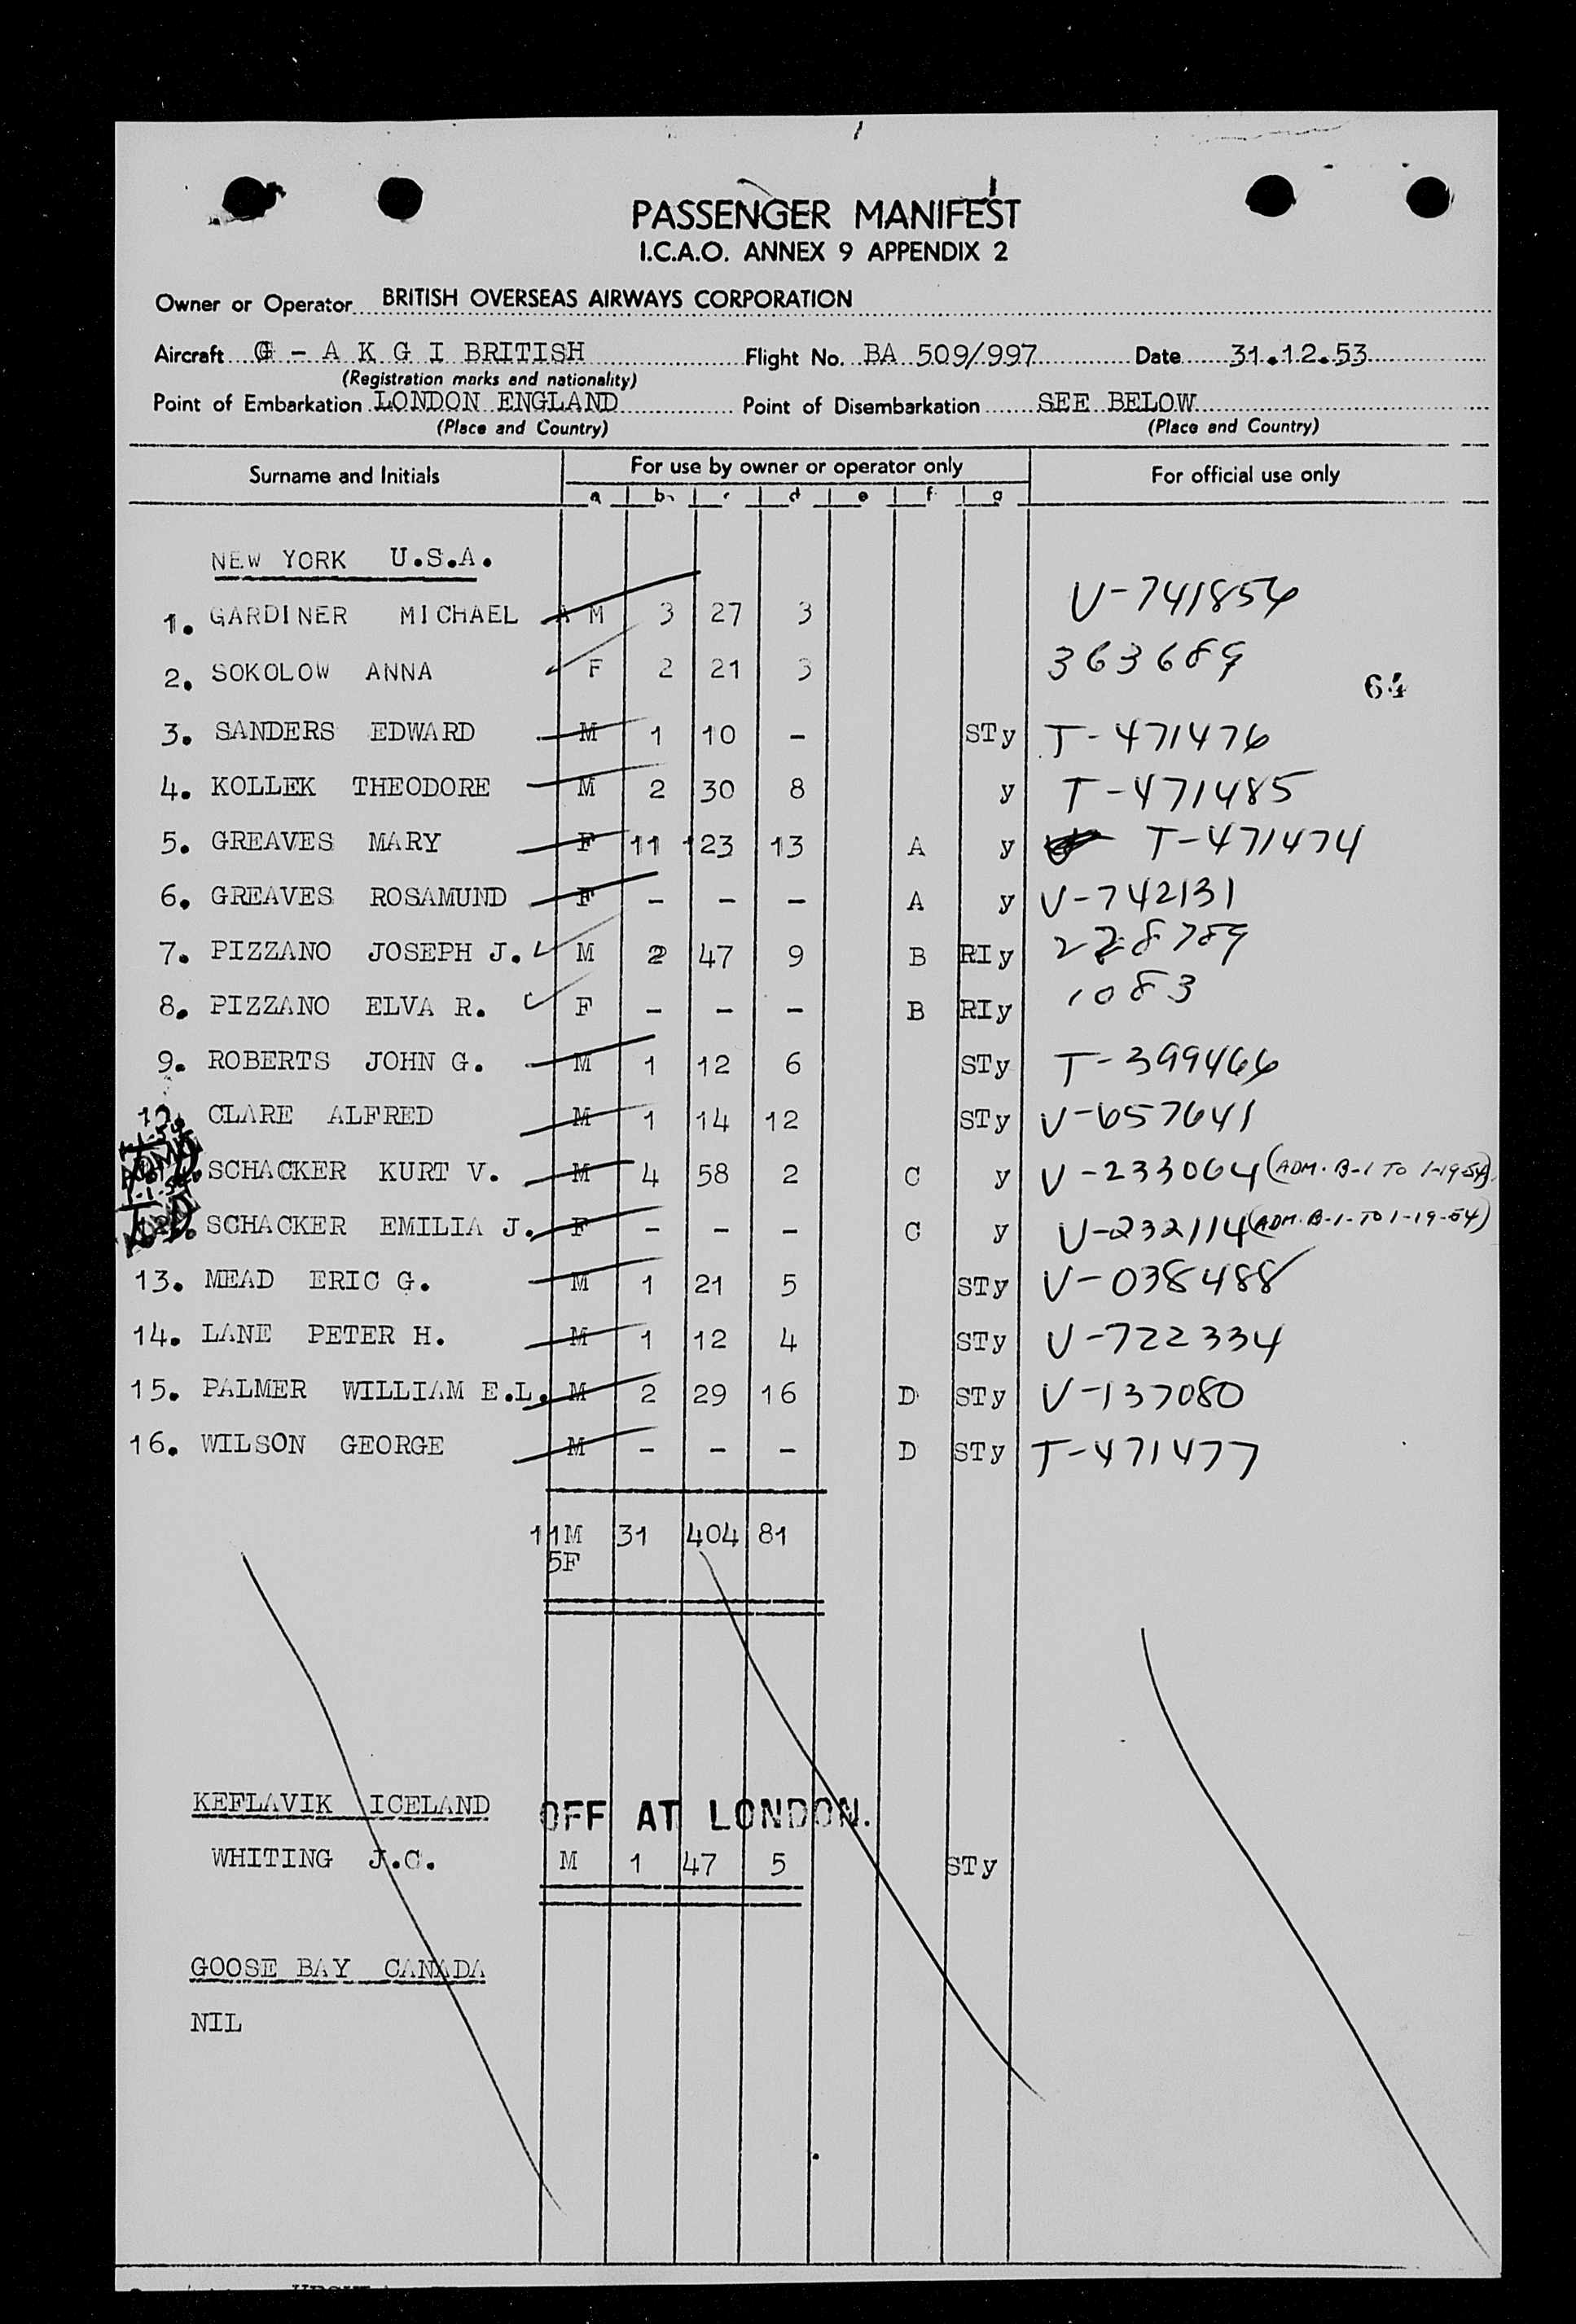 PASSENGER MANIFEST
I.C.A.O. ANNEX 9 APPENDIX 2
Owner or Operator BRITISH OVERSEAS AIRWAYS CORPORATION
Aircraft G - A K G I BRITISH Flight No. BA 509/997 Date 31.12.53
(Registration marks and nationality)
Point of Embarkation LONDON ENGLAND Point of Disembarkation SEE BELOW
(Place and Country) (Place and Country)
Surname and Initials For use by owner or operator only For official use only
a b c d e f g
NEW YORK U.S.A.
1. GARDINER MICHAEL A M 3 27 3 V-741854
2. SOKOLOW ANNA F 2 21 3 363689
64
3. SANDERS EDWARD M 1 10 - STy T-471476
4. KOLLEK THEODORE M 2 30 8 y T-471485
5. GREAVES MARY F 11 123 13 A y T-471474
6. GREAVES ROSAMUND F - - - A y V-742131
7. PIZZANO JOSEPH J. M 2 47 9 B RIy 228789
8. PIZZANO ELVA R. F - - - B RIy 1083
9. ROBERTS JOHN G. M 1 12 6 STy T-399466
10. CLARE ALFRED M 1 14 12 STy V-657641
SCHACKER KURT V. M 4 58 2 C y V-233064 (ADM. B-1 TO 1-19-54)
SCHACKER EMILIA J. F - - - C y V-232114 (ADM. B-1-TO 1-19-54)
13. MEAD ERIC G. M 1 21 5 STy V-038488
14. LANE PETER H. M 1 12 4 STy V-722334
15. PALMER WILLIAM E.L. M 2 29 16 D STy V-137080
16. WILSON GEORGE M - - - D STy T-471477
11M 31 404 81
5F
KEFLAVIK ICELAND OFF AT LONDON.
WHITING J.C. M 1 47 5 STy
GOOSE BAY CANADA
NIL